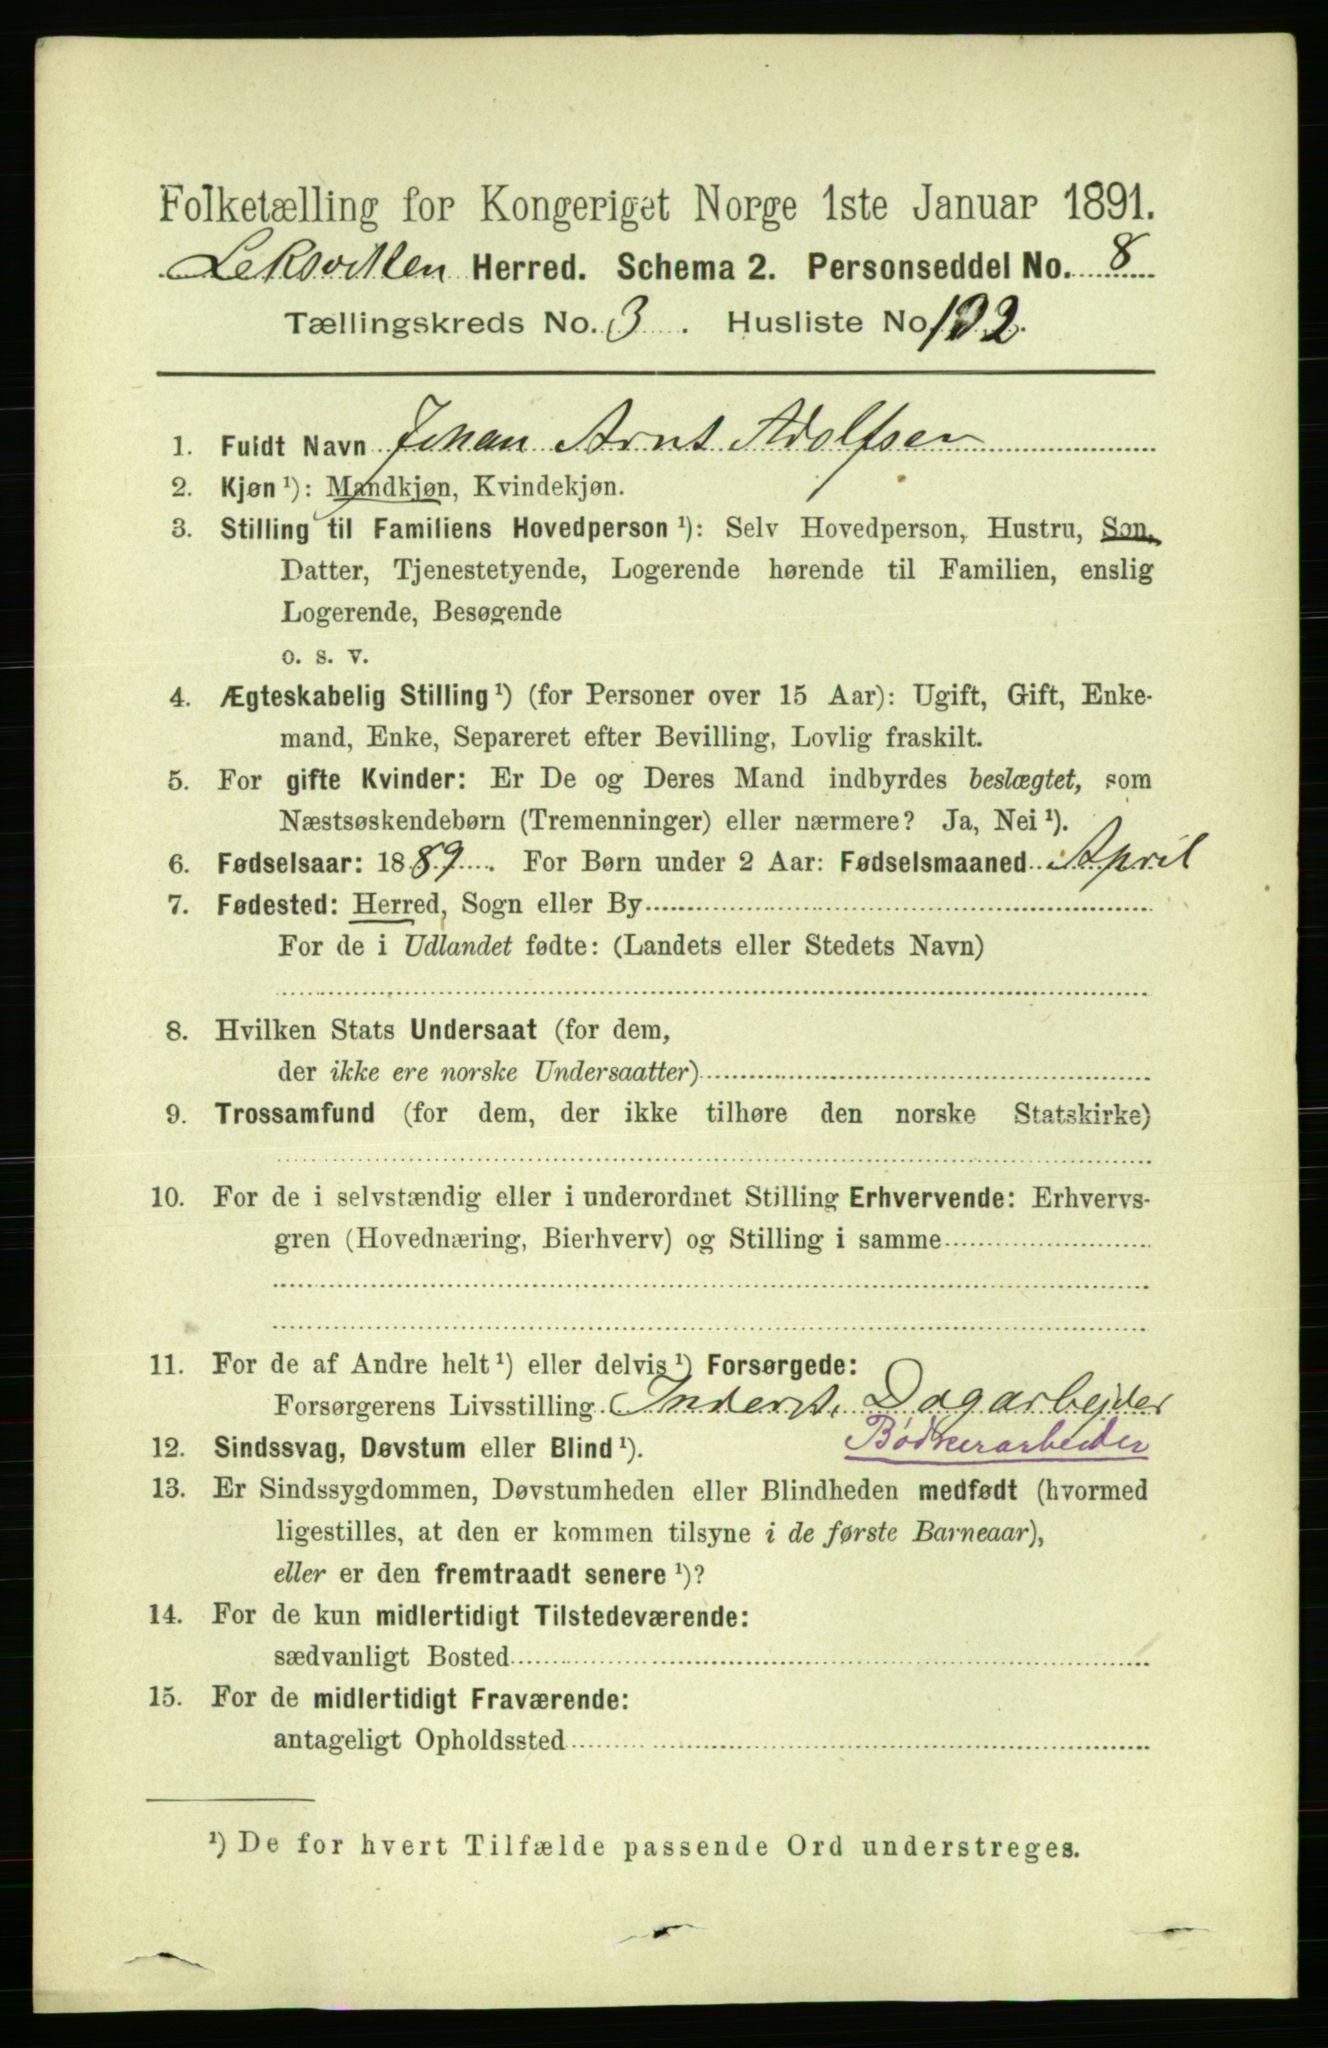 Folketælling for Kongeriget Norge 1ste Januar 1891.
Leksviken Herred. Schema 2. Personseddel No. 8
Tællingskreds No. 3. Husliste No 102.
1. Fuldt Navn Johan Arnt Adolfsen
2. Kjøn ¹): Mandkjøn, Kvindekjøn.
3. Stilling til Familiens Hovedperson ¹): Selv Hovedperson, Hustru, Søn,
Datter, Tjenestetyende, Logerende hørende til Familien, enslig
Logerende, Besøgende
o. s. v.
4. Ægteskabelig Stilling ¹) (for Personer over 15 Aar): Ugift, Gift, Enke-
mand, Enke, Separeret efter Bevilling, Lovlig fraskilt.
5. For gifte Kvinder: Er De og Deres Mand indbyrdes beslægtet, som
Næstsøskendebørn (Tremenninger) eller nærmere? Ja, Nei ¹).
6. Fødselsaar: 1889. For Børn under 2 Aar: Fødselsmaaned April
7. Fødested: Herred, Sogn eller By
For de i Udlandet fødte: (Landets eller Stedets Navn)
8. Hvilken Stats Undersaat (for dem,
der ikke ere norske Undersaatter)
9. Trossamfund (for dem, der ikke tilhøre den norske Statskirke)
10. For de i selvstændig eller i underordnet Stilling Erhvervende: Erhvervs-
gren (Hovednæring, Bierhverv) og Stilling i samme
11. For de af Andre helt ¹) eller delvis ¹) Forsørgede:
Forsørgerens Livsstilling Inderst, Dagarbejder
12. Sindssvag, Døvstum eller Blind ¹). Bødkerarbeider
13. Er Sindssygdommen, Døvstumheden eller Blindheden medfødt (hvormed
ligestilles, at den er kommen tilsyne i de første Barneaar),
eller er den fremtraadt senere ¹)?
14. For de kun midlertidigt Tilstedeværende:
sædvanligt Bosted
15. For de midlertidigt Fraværende:
antageligt Opholdssted
¹) De for hvert Tilfælde passende Ord understreges.